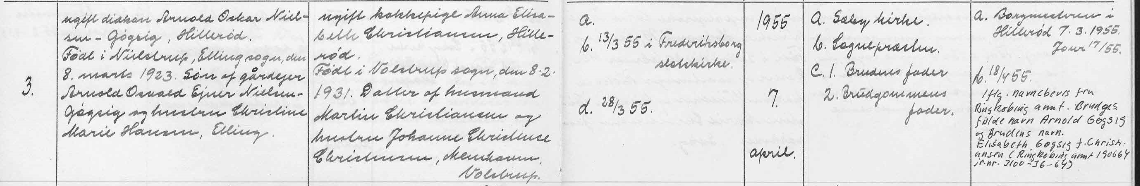 3.
ugift diakon Arnold Oskar Niel-
sen-Gøgsig, Hillerød.
Født i Nielstrup, Elling sogn, den
8. marts 1923. Søn af gårdejer
Arnold Osvald Ejner Nielsen-
Gøgsig og hustru Christine
Marie Hansen, Elling.
ugift kokkepige Anna Elisa-
beth Christiansen, Hille-
rød.
Født i Volstrup sogn, den 8. 2.
1931. Datter af husmand
Martin Christiansen og
hustru Johanne Christense
Christiansen,
Volstrup.
a.
b. 13/3 55 i Frederiksborg
slotskirke.
d. 28/3 55.
1955
7.
april.
a. Sæby kirke.
b. Sognepræsten.
c. 1. Brudens fader
2. Brudgommens
fader.
a. Borgmesteren i
Hillerød 7. 3. 1955.
Jour 17/55.
b. 18/4 55
Iflg. navnebevis fra
Ringkøbing amt. Brudgs
fulde navn Arnold Gøgsig
og Brudens navn.
Elisabeth Gøgsig f. Christi-
ansen (Ringkøbing amt 190664
jr. nr. 3100-36-64)